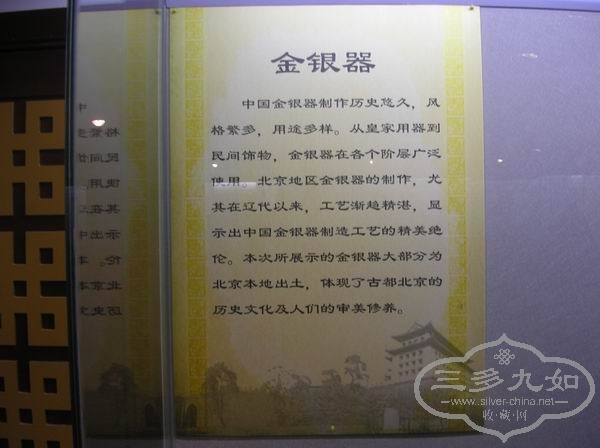 金银器
中国金银器制作历史悠久，风
格繁多，用途多样。从皇家用器到
民间饰物，金银器在各个阶层广泛
使用。北京地区金银器的制作，尤
其在辽代以来，工艺渐趋精湛，显
示出中国金银器制造工艺的精美绝
伦。本次所展示的金银器大部分为
北京本地出土，体现了古都北京的
历史文化及人们的审美修养。
三多九如
www.silver-china.net
收·藏·网